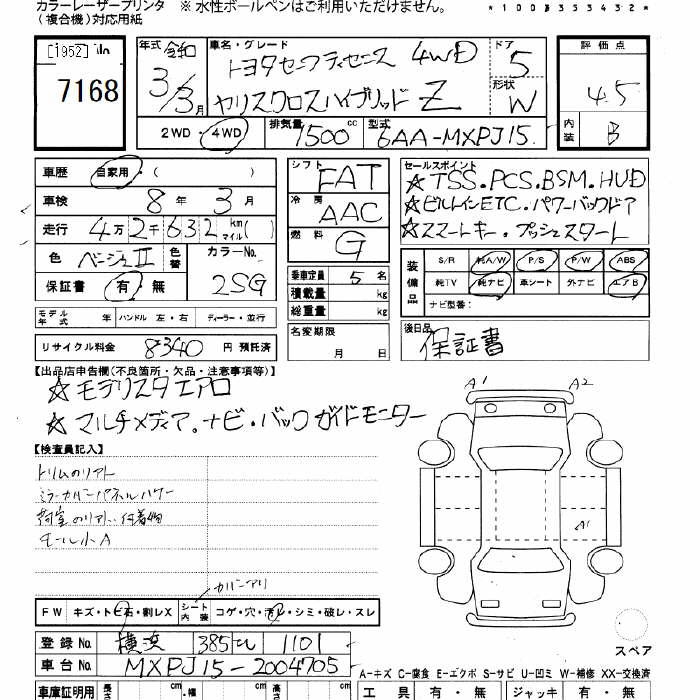 カラーレーザープリンタ ※ 水性ボールペンはご利用いただけません。
(複合機)対応用紙
*1000353432*
[1952]
7168
年式 令和 3/3月
車名・グレード トヨタセーフティセンス 4WD
ヤリスクロスハイブリッド Z
ドア 5
形状 W
2WD・4WD 排気量 1500 cc 型式 6AA-MXPJ15
評価点 4.5
内装 B
車歴 自家用・( )
車検 8年 3月
走行 4万2千632 km マイル( )
色 ベージュII 色替 カラーNo. 2SG
保証書 有・無
モデル年式 年 ハンドル 左・右 ディーラー・並行
リサイクル料金 8340 円 預託済
シフト FAT
冷房 AAC
燃料 G
乗車定員 5 名
積載量 kg
総重量 kg
名変期限 月 日
セールスポイント
☆TSS.PCS.BSM.HUD
☆ビルトインETC.パワーバックドア
☆スマートキー.プッシュスタート
装備品 S/R 純A/W P/S P/W ABS
純TV 純ナビ 革シート 外ナビ エアB
ナビ型番:
後日品 保証書
【出品店申告欄(不良箇所・欠品・注意事項等)】
☆モデリスタエアロ
☆マルチメディア.ナビ・バックガイドモニター
【検査員記入】
トリムのリアト
荷室のリアト.付着物
モール小A
カバーアリ
FW キズ・トビ石・割レX シート内装 コゲ・穴・汚レ・シミ・破レ・スレ
登録No. 横浜 385 1101
車台No. MXPJ15-2004705
車庫証明用 長さ cm 幅 cm 高さ cm
A1 A2
A1
スペア
A-キズ C-腐食 E-エクボ S-サビ U-凹ミ W-補修 XX-交換済
工具 有・無 ジャッキ 有・無